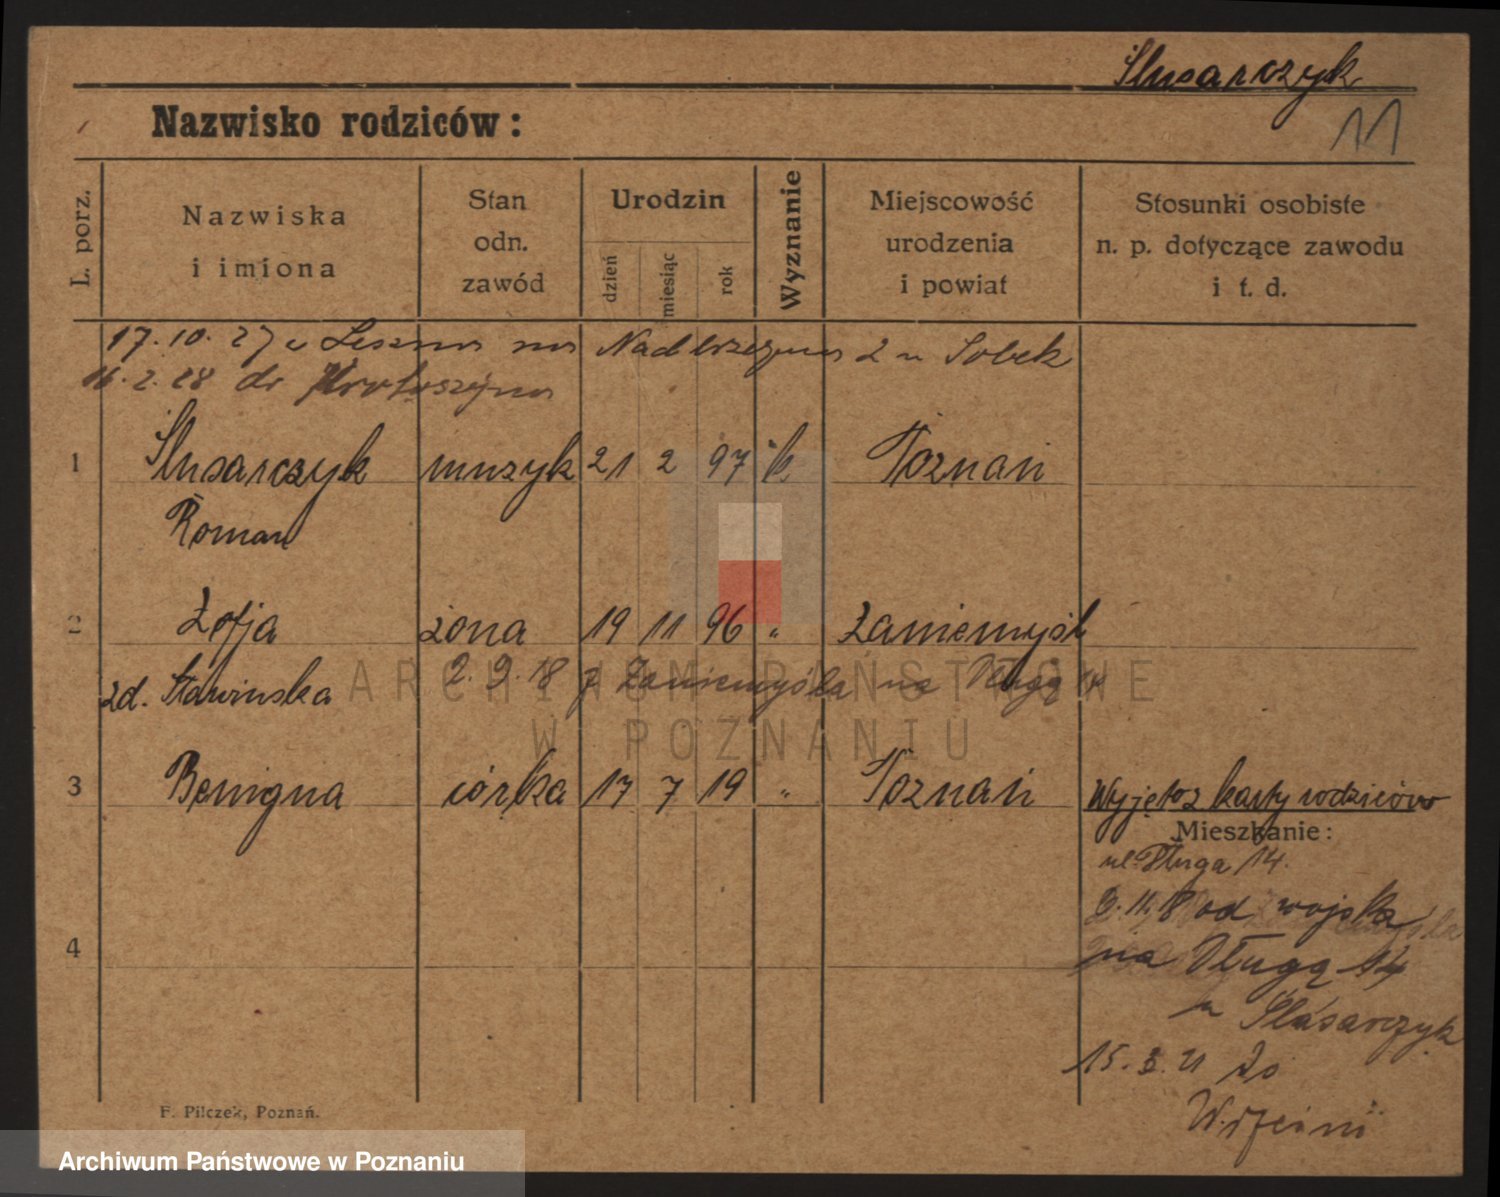 Ślusarczyk
Nazwisko rodziców:
11
L. porz.
Nazwiska
i imiona
Stan
odn.
zawód
Urodzin
dzień
miesiąc
rok
Wyznanie
Miejscowość
urodzenia
i powiat
Stosunki osobiste
n. p. dotyczące zawodu
i t. d.
17. 10. 27 z Leszna na Nadbrzeżna 2 u Sobek
16. 2. 28 do Krotoszyna
1 Ślusarczyk muzyk 21 2 97 k Poznań
Roman
2 Zofja żona 19 11 96 " Zaniemyśl
zd. Stawinska 2. 9. 18 z Zaniemyśla na Długą 14
3 Benigna córka 17 7 19 " Poznań
Wyjęto z karty rodziców
Mieszkanie:
ul. Długa 14.
11. 18 od wojska
na Długą 14
u Ślusarczyk
4
15. 3. 21 do
F. Pilczek, Poznań.
ARCHIWUM PAŃSTWOWE
W POZNANIU
Archiwum Państwowe w Poznaniu